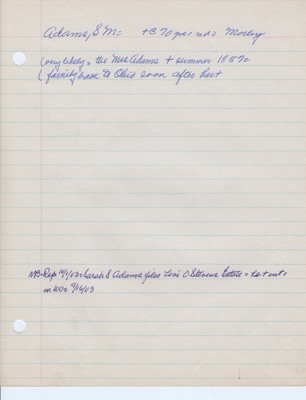 Adams, S M= +C 70 yrs ind= Morley
(very likely = the Mrs Adams + summer 1857=
(family back to Ohio soon after her +
MB-Rep Sarah S Adams files Levi O Stevens Estate = Est +
in 9/16/03